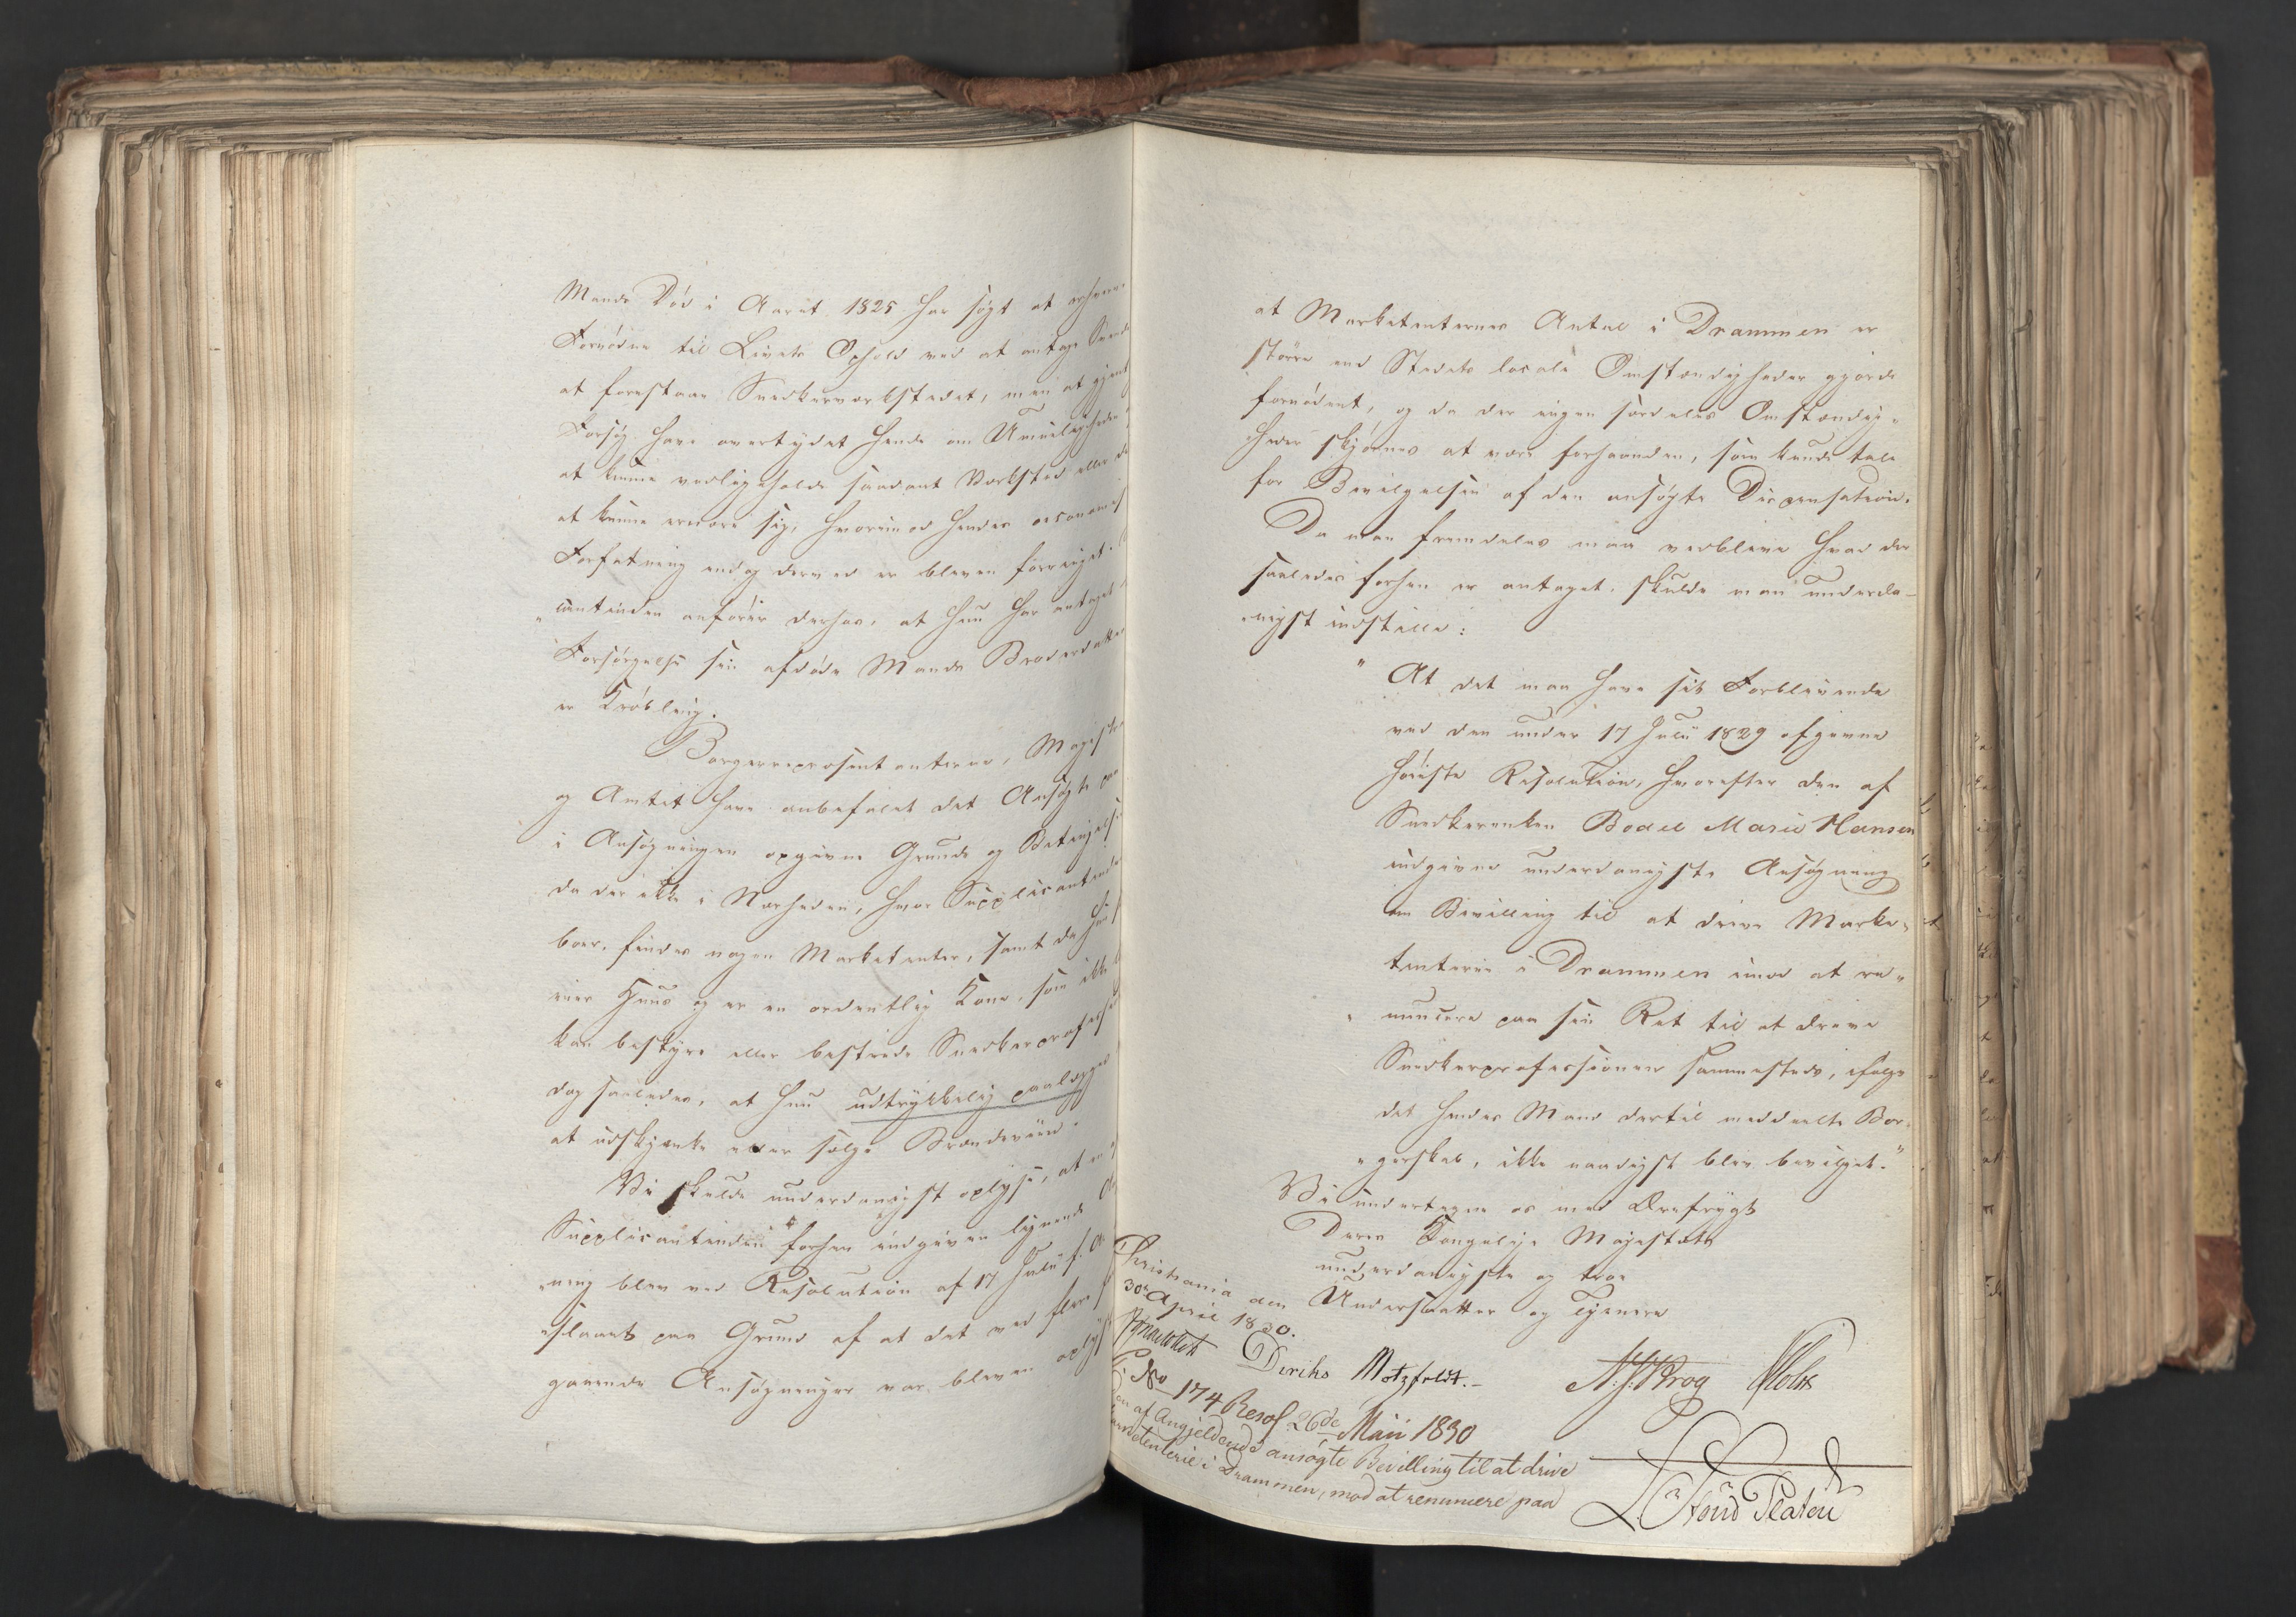 Mands Død i Aaret 1825 har søgt at erhverve
Fornødne til Livets Ophold ved at antage Svende
at forestaae Snedkerværkstedet, men at gjent
Forsøg have overtydet hende om Umueligheden
at kunne vedligeholde saadant Værksted eller de
at kunne ernære sig, hvorimod hendes oeconomi
Forfatning endog derved er bleven forringet.
cantinden anfører derhos, at hun har antaget
Forsørgelse sin afdøde Mands Broderdatter
er Krøbling.
Borgerrepræsentanterne, Magistr
og Amtet have anbefalet det Ansøgte paa
i Ansøgningen opgivne Grunde og Betingelse
da der ikke i Nærheden, hvor Supplicantinde
boer, findes nogen Marketenter, samt da hun
eier Huus og er en ordentlig Kone, som ikke
kan bestyre eller bestride Snedkerprofess
dog saaledes, at hun udtrykkelig paalægges
at udskjænke eller sælge Brændeviin.
Vi skulde underdanigst oplyse, at en
Supplicantinden forhen indgiven lignende
ning blev ved Resolution af 17 Julii f. A.
slaaet paa Grund af at det ved flere
gaaende Ansøgninger var bleven oplyst
at Marketenternes Antal i Drammen er
større end Stedets locale Omstændigheder gjorde
fornødent, og da der ingen særdeles Omstændig-
heder skjønnes at være forhaanden, som kunde tale
for Bevilgelsen af den ansøgte Dispensation.
Da man fremdeles maa vedblive hvad der
saaledes forhen er antaget, skulde man underda-
nigst indstille:
"At det maa have sit Forblivende
ved den under 17 Julii 1829 afgivne
høieste Resolution, hvorefter den af
Snedkerenken Bodil Marie Hansen
indgivne underdanigste Ansøgning
om Bevilling til at drive Marke-
tenterie i Drammen imod at re-
nuncere paa sin Ret til at drive
Snedkerprofessionen sammesteds, ifølge
det hendes Mand dertil meddeelte Bor-
gerskab, ikke naadigst blev bevilget."
Vi undertegne os med Ærefrygt
Deres Kongelige Majestæts
underdanigste og troe
Undersaatter og Tjenere
Christiania den
30te April 1830.
Diriks Motzfeldt. N. J. Krog Holst
No 174 Resol. 26de Maii 1830
Den af Angjeldende ansøgte Bevilling til at drive
Marketenterie i Drammen, mod at renuncere paa
L. Stoud Platou